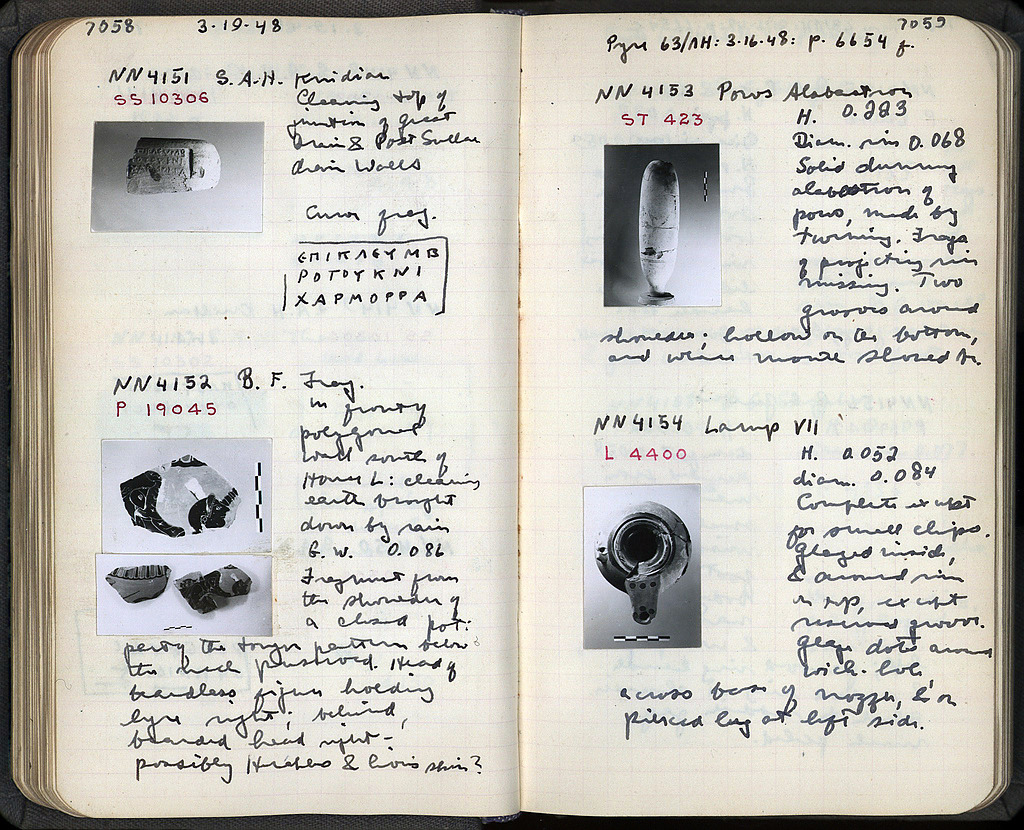 7058 3-19-48
NN4151 S.A.H. Meridian
SS 10306
Cleaning top of
junction of great
Drain & Post Sullan
drain Walls
Curved frag.
ΕΠΙΚΛΕΥΜΒ
ΡΟΤΟΥΚΝΙ
ΧΑΡΜΟΡΡΑ
NN4152 B. F. Frag.
P 19045
in front of
polygonal
wall south of
House L: cleaning
earth brought
down by rain
G. W. 0.086
Fragment from
the shoulder of
a closed pot:
part of the tongue pattern below
the neck preserved. Head of
beardless figure holding
lyre right; behind,
bearded head right -
possibly Herakles & lion's skin?
7059
Pyre 63/ΛΗ: 3-16-48: p. 6654 f.
NN 4153 Poros Alabastron
ST 423
H. 0.223
Diam. rim 0.068
Solid dummy
alabastron of
poros, made by
turning. Frags
of projecting rim
missing. Two
grooves around
shoulder; hollow on the bottom,
and where mouth should be.
NN4154 Lamp VII
L 4400
H. 0.052
diam. 0.084
Complete except
for small chips.
Glazed inside,
& around rim
on top, except
reserved groove.
Glaze dots around
wick-hole,
across base of nozzle, & on
pierced lug at left side.